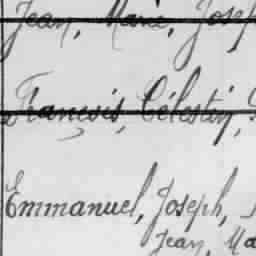 Jean, Marie, Josep
François, Célestin,
Emmanuel, Joseph,
Jean, Ma